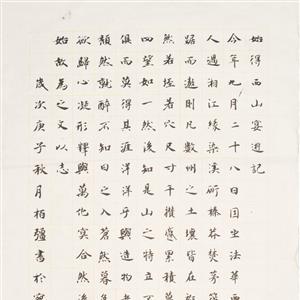 始得西山宴遊記
今年九月二十八日因坐法華西
人過湘江緣染溪斫榛莽焚茅
踞而遨則凡數州之土壤皆在
然若垤若穴尺寸千里攢蹙累積
四望如一然後知是山之特立不
俱而莫得其涯洋洋乎與造物者
頹然就醉不知日之入蒼然暮
欲歸心凝形釋與萬化冥合然後
始故為之文以志
歲次庚子秋月柏彊書於